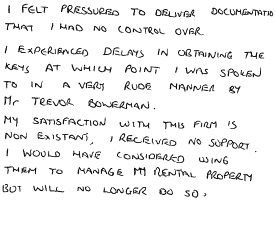 I FELT PRESSURED TO DELIVER DOCUMENTATIO
THAT I HAD NO CONTROL OVER
I EXPERIENCED DELAYS IN OBTAINING THE
KEYS AT WHICH POINT I WAS SPOKEN
TO IN A VERY RUDE MANNER BY
Mr TREVOR BOWERMAN.
MY SATISFACTION WITH THIS FIRM IS
NON EXISTANT, I RECEIVED NO SUPPORT.
I WOULD HAVE CONSIDERED USING
THEM TO MANAGE MY RENTAL PROPERTY
BUT WILL NO LONGER DO SO.